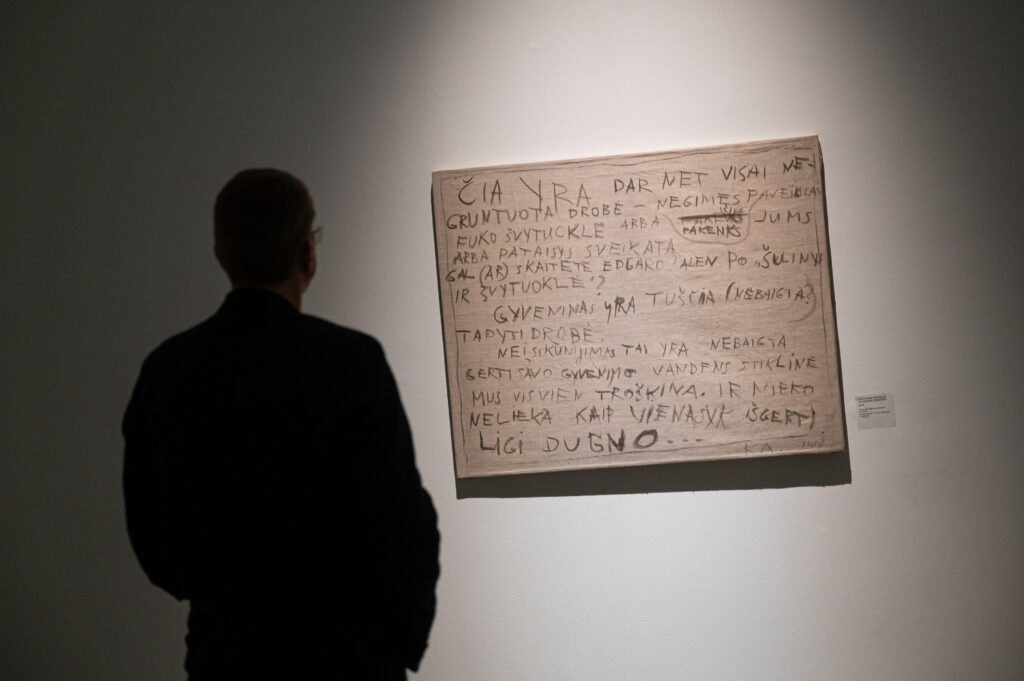 ČIA YRA DAR NET VISAI NE-
GRUNTUOTA DROBĖ – NEGIMĘS PAVEIKLAS
FUKO ŠVYTUCKLĖ ARBA PAKENKS JUMS
ARBA PATAISYS SVEIKATĄ
GAL (AR) SKAITĖTE EDGARO ALEN PO „ŠULINYS
IR ŠVYTUOKLĖ"?
GYVENIMAS YRA TUŠČIA (NEBAIGTA?)
TAPYTI DROBĖ.
NEIŠIKŪNIJIMAS TAI YRA NEBAIGTA
GERTI SAVO GYVENIMO VANDENS STIKLINĖ
MUS VISVIEN TROŠKINA. IR NIEKO
NELIEKA KAIP VIENĄSYK IŠGERTI
LIGI DUGNO...